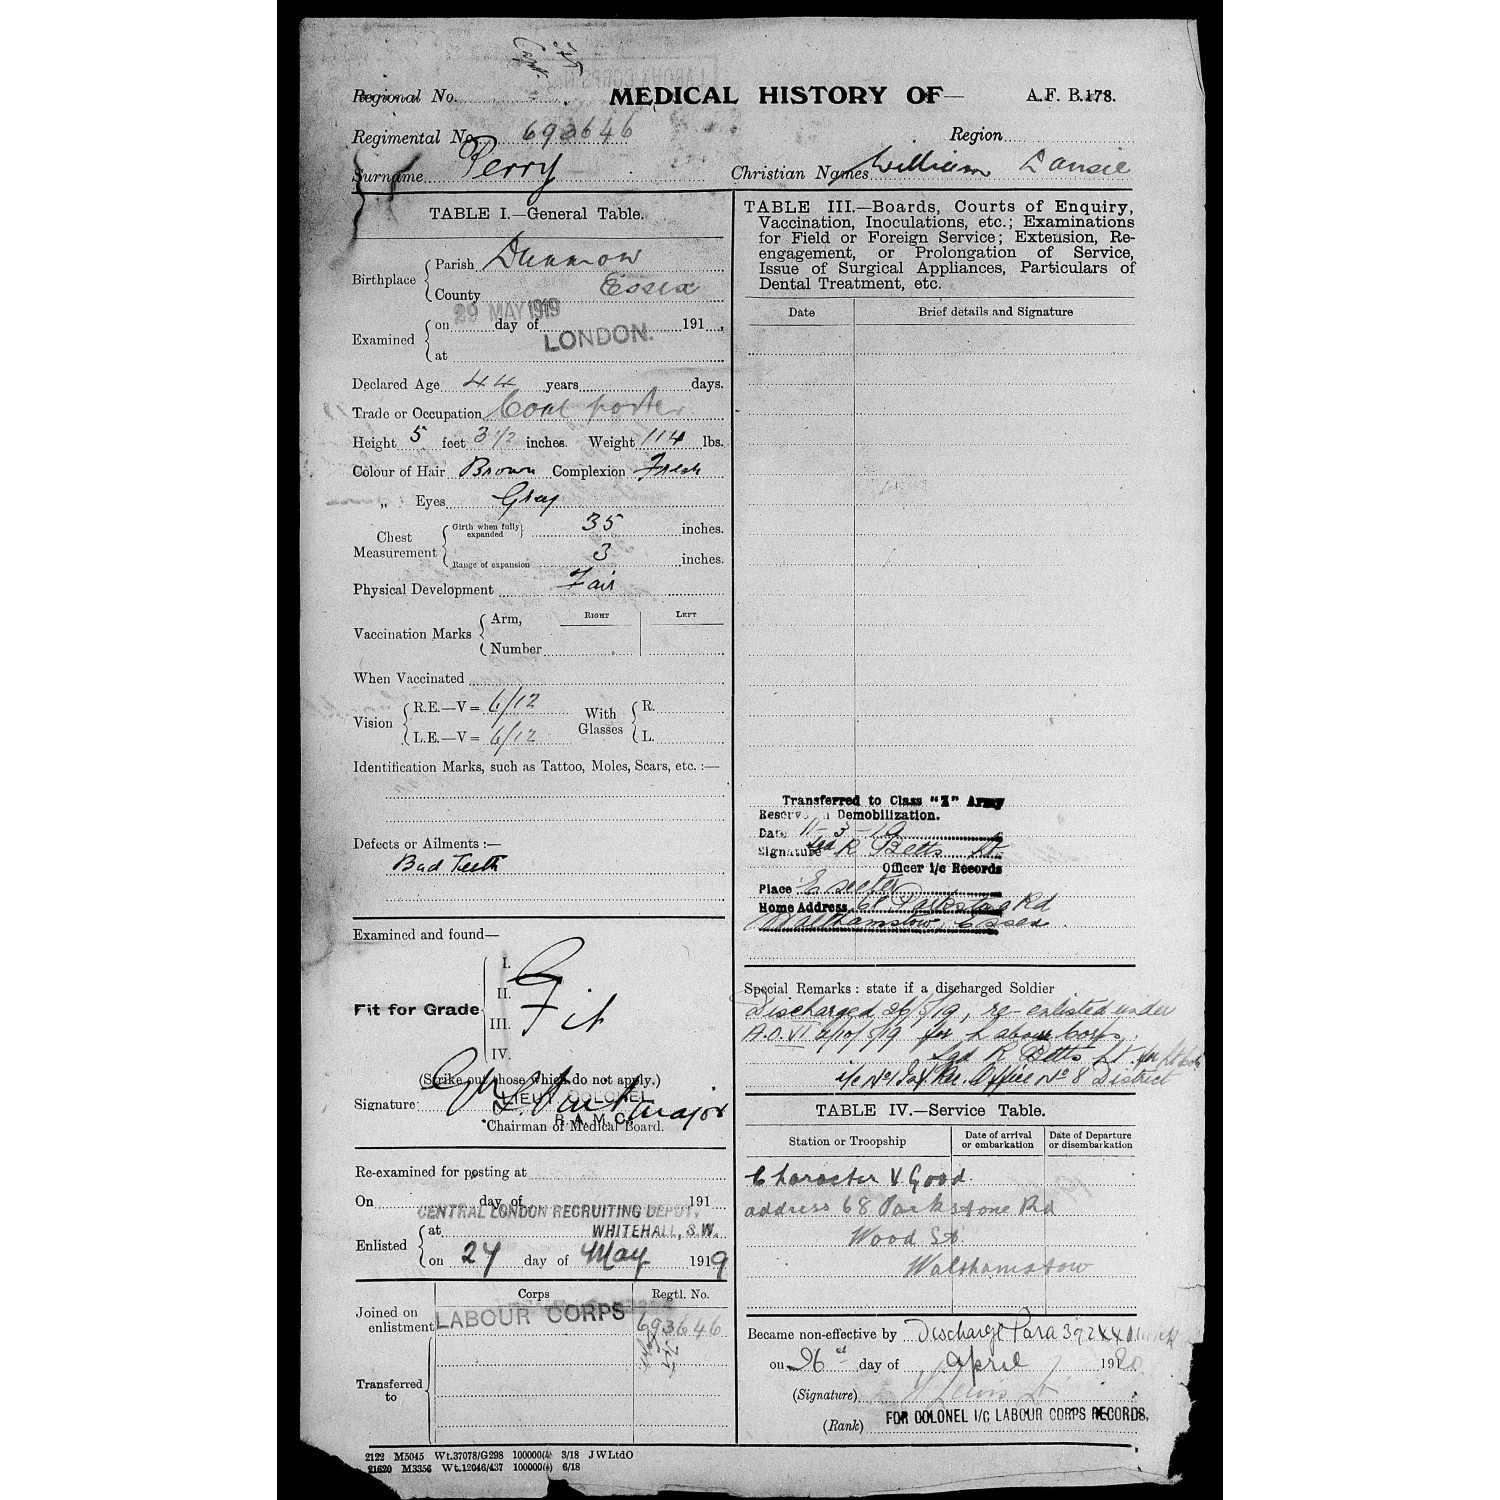 Regional No.
MEDICAL HISTORY OF—
A.F. B.178.
Regimental No. 693646
Region
Surname Perry
Christian Names William
TABLE I.—General Table.
Birthplace
Parish Dunmow
County Essex
29 MAY 1919
Examined
on day of 191 ,
at LONDON.
Declared Age 44 years days.
Trade or Occupation Coal porter
Height 5 feet 3½ inches. Weight 114 lbs.
Colour of Hair Brown Complexion Fresh
„ Eyes Grey
Chest Measurement
Girth when fully expanded 35 inches.
Range of expansion 3 inches.
Physical Development Fair
Vaccination Marks
Arm, RIGHT LEFT
Number
When Vaccinated
Vision
R.E.—V = 6/12
L.E.—V = 6/12
With Glasses
R.
L.
Identification Marks, such as Tattoo, Moles, Scars, etc. :—
Defects or Ailments :—
Bad Teeth
Examined and found—
Fit for Grade
I.
II.
III.
IV.
Fit
(Strike out those which do not apply.)
LIEUT COLONEL
Signature: Major
R.A.M.C.
Chairman of Medical Board.
Re-examined for posting at
On day of 191
CENTRAL LONDON RECRUITING DEPOT,
WHITEHALL, S.W.
Enlisted
at
on 27 day of May 1919
Corps Regtl. No.
Joined on enlistment LABOUR CORPS 693646
Transferred to
2122 M5045 Wt.37078/G298 100000(4) 3/18 J W Ltd O
21620 M3356 Wt.12046/437 100000(6) 6/18
TABLE III.—Boards, Courts of Enquiry,
Vaccination, Inoculations, etc.; Examinations
for Field or Foreign Service; Extension, Re-
engagement, or Prolongation of Service,
Issue of Surgical Appliances, Particulars of
Dental Treatment, etc.
Date Brief details and Signature
Transferred to Class "Z" Army
Reserve on Demobilization.
Date 11-3-19
Signature Sgd R Betts Lt.
Officer i/c Records
Place Exeter
Home Address Parkstone Rd
Walthamstow, Essex
Special Remarks : state if a discharged Soldier
Discharged 26/5/19, re-enlisted under
A.O. VI 2/10/5/19 for Labour Corps
Sgd R Betts Lt. for
i/c No 1 Inf Rec. Office No 8 District
TABLE IV.—Service Table.
Station or Troopship
Date of arrival or embarkation
Date of Departure or disembarkation
Character V Good.
address 68 Parkstone Rd
Wood St
Walthamstow
Became non-effective by Discharge Para 392
on 26 day of April 1920
(Signature) Lewis Lt
(Rank) FOR COLONEL I/C LABOUR CORPS RECORDS.